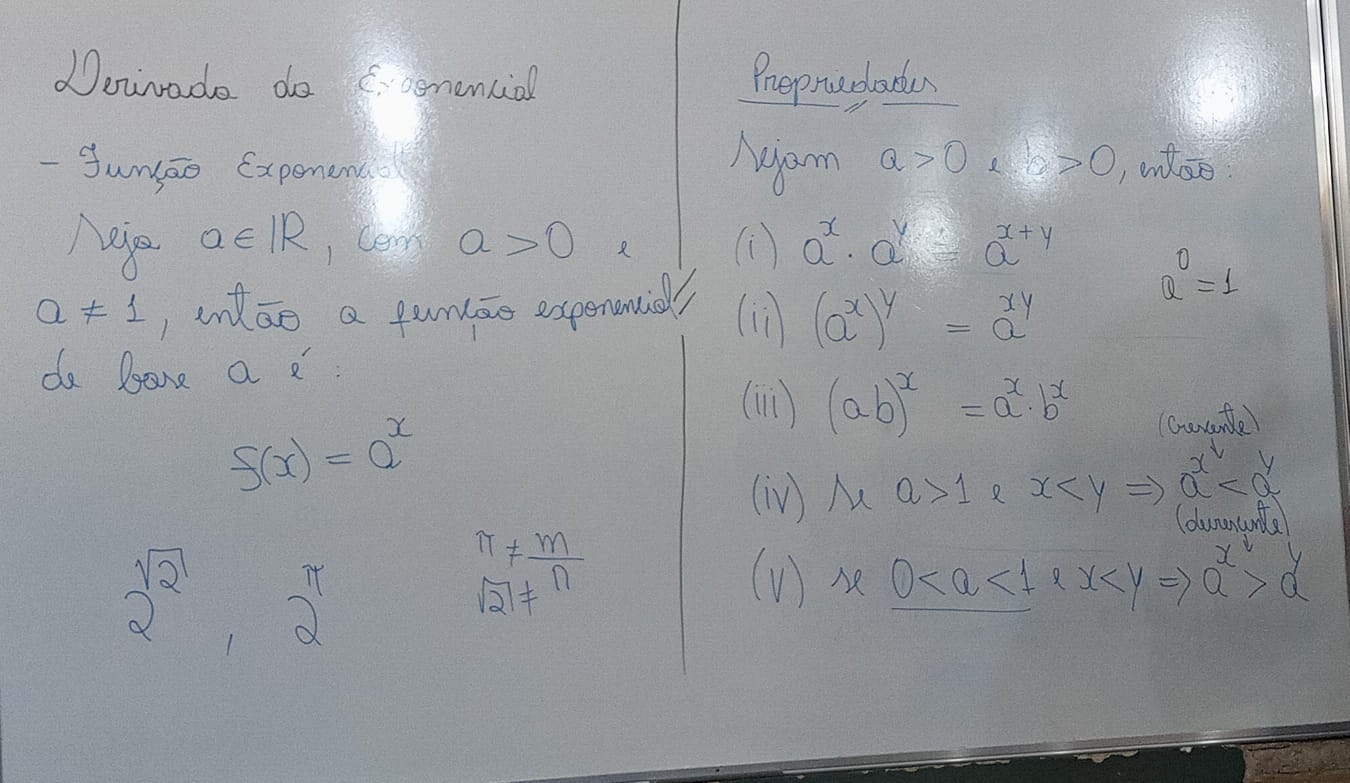 Derivada da Exponencial
- Função Exponencial
Seja a ∈ ℝ, com a > 0 e
a ≠ 1, então a função exponencial
de base a é:
f(x) = a^x
2^√2, 2^π
π ≠ m/n
√2 ≠
Propriedades
Sejam a > 0 e b > 0, então:
(i) a^x · a^y = a^(x+y)
a^0 = 1
(ii) (a^x)^y = a^(xy)
(iii) (ab)^x = a^x · b^x
(crescente)
(iv) Se a > 1 e x < y ⇒ a^x < a^y
(decrescente)
(v) se 0 < a < 1 e x < y ⇒ a^x > a^y